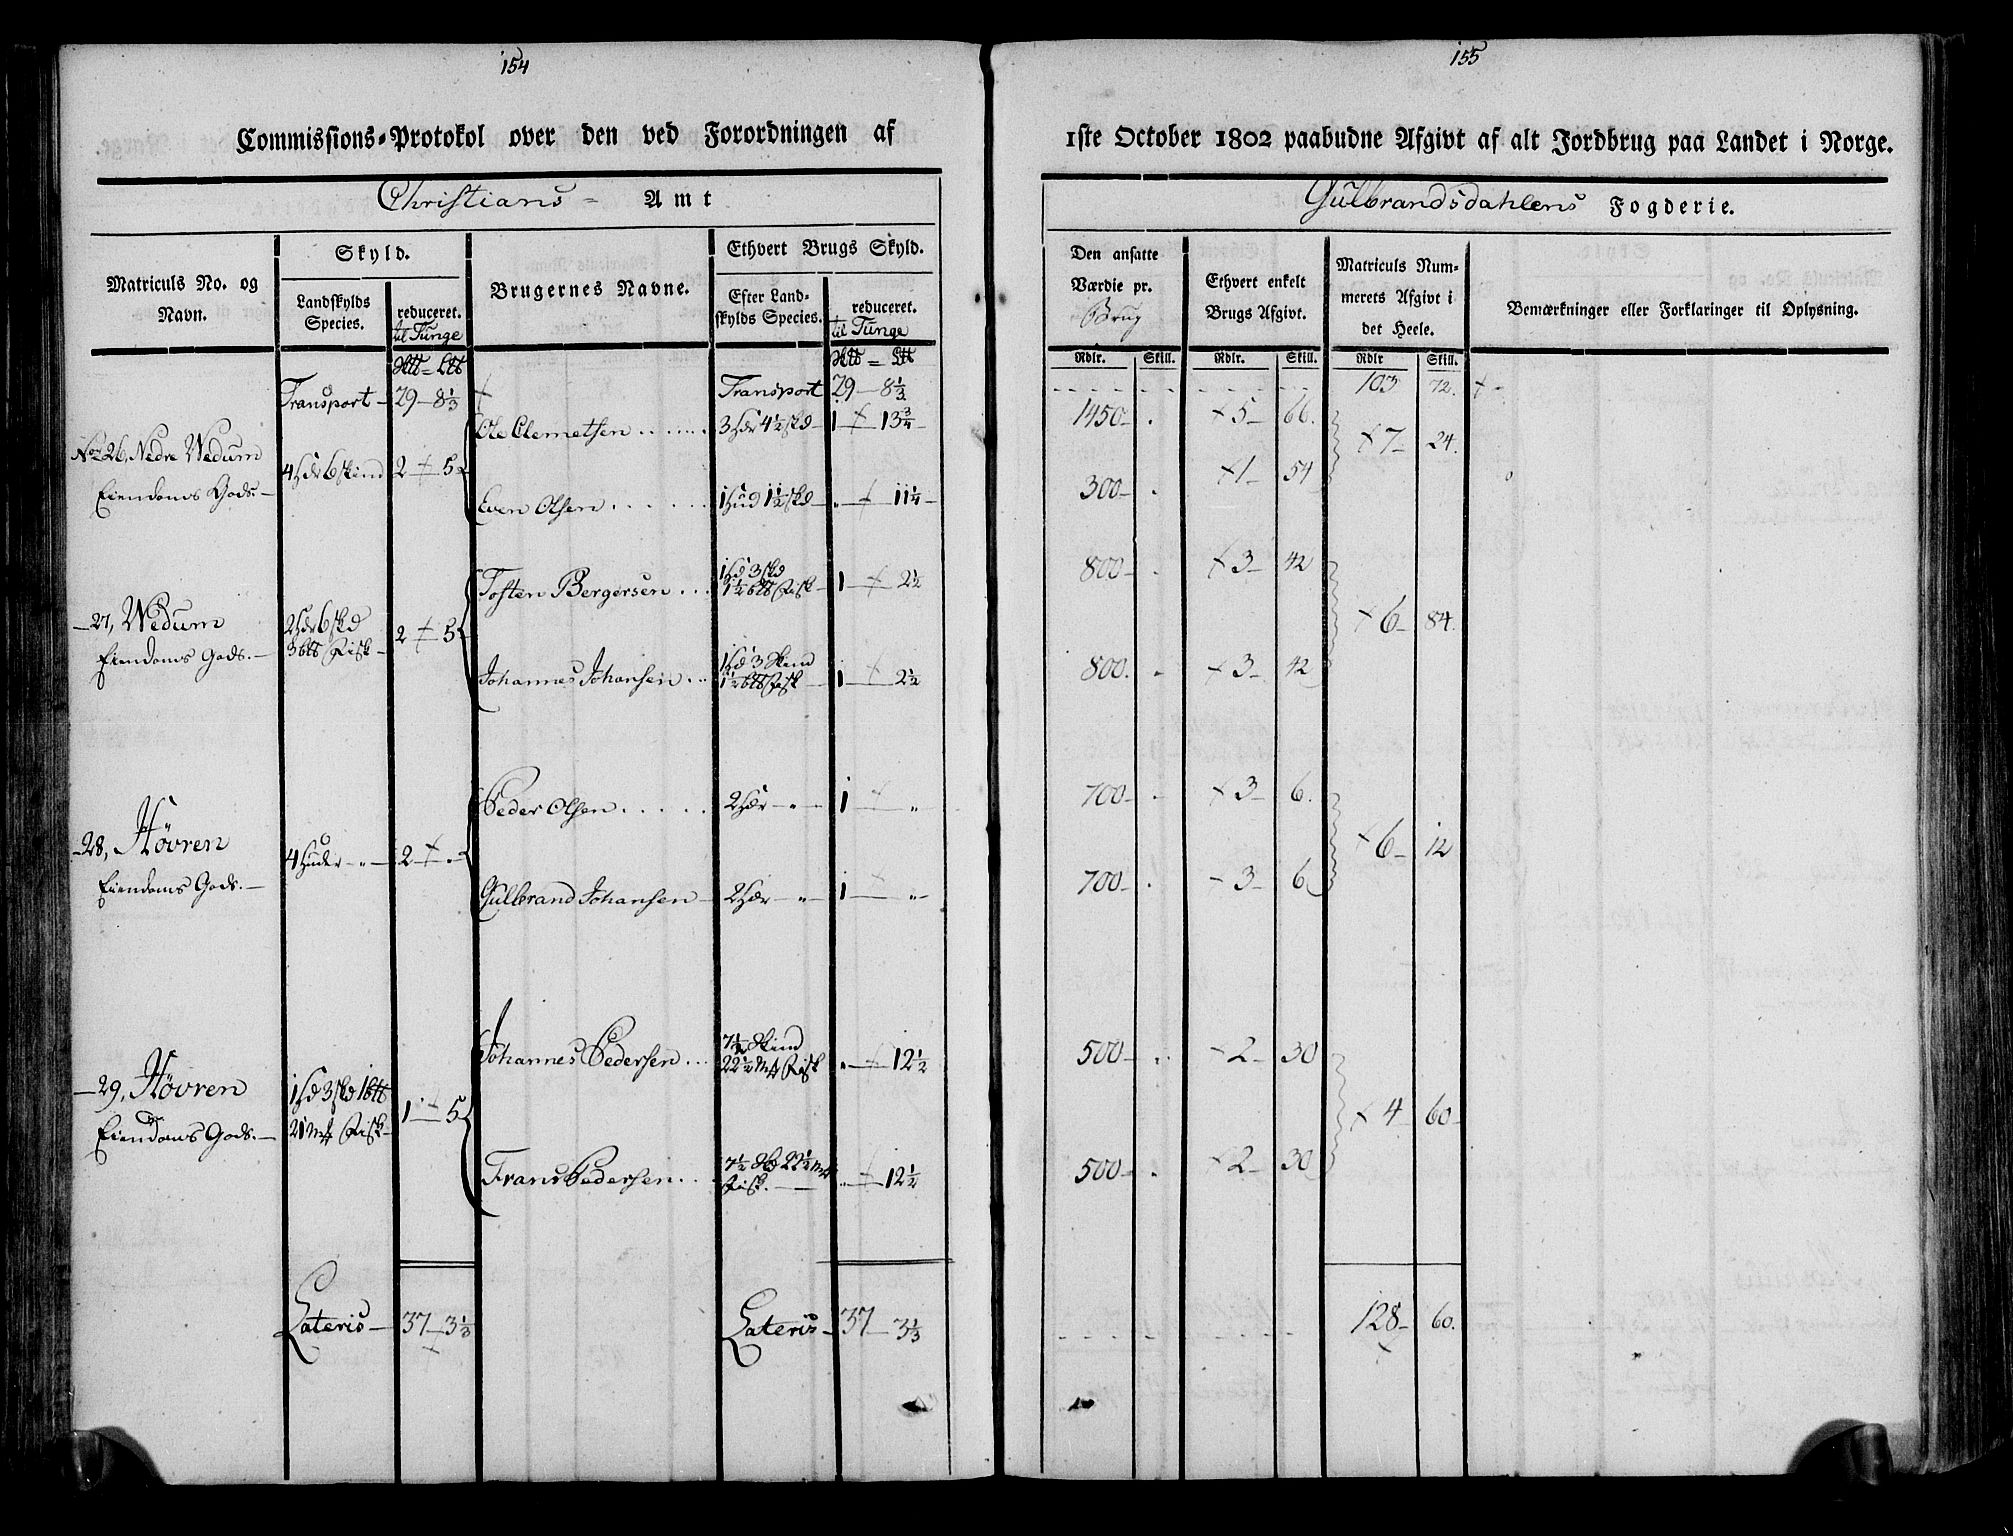 154
Commissions-Protokol over den ved Forordningen af
Christians- Amt
Matriculs No. og Navn.
Skyld.
Landskylds Species.
reduceret.
til Tunge
Brugernes Navne.
Ethvert Brugs Skyld.
Efter Landskylds Species.
reduceret.
til Tunge
Transport - 29 - 8 1/3 Transport 29 - 8 1/3
No 26, Nedre Wedum
Eiendoms Gods. -
4 Hdr 6 Skind 2 - 5
Ole Clemetsen ...... 3 Hdr 4 1/2 Skd - 1 - 13 3/4
Even Olsen ...... 1 Hud 1 1/2 Skd - " - 11 1/4 -
- 27, Wedum
Eiendoms Gods. -
2 Hdr 6 Skd
3 Fisk - 2 - 5
Tosten Bergersen ... 1 Hd 3 Skd
1 1/2 Fisk - 1 - 2 1/2
Johannes Johansen .. 1 Hd 3 Skind
1 1/2 Fisk - 1 - 2 1/2
- 28, Hövren
Eiendoms Gods. -
4 Huder - " - 2 - " -
Peder Olsen ..... 2 Hdr - " - 1 - "
Gulbrand Johansen - 2 Hdr - " - 1 - " -
- 29, Hövren
Eiendoms Gods. -
1 Hd 3 Skd 1
21 Mk Fisk - 1 - 5
Johannes Pedersen ... 7 1/2 Skind
22 1/2 Mk Fisk " - 12 1/2
Frans Pedersen ... 7 1/2 22 1/2 Mk
Fisk. - " - 12 1/2
Lateris - 37 - 3 1/3 Lateris - 37 - 3 1/3
155
1ste October 1802 paabudne Afgivt af alt Jordbrug paa Landet i Norge.
Gulbrandsdahlens Fogderie.
Den ansatte Værdie pr.
Brug
Ethvert enkelt Brugs Afgivt.
Matriculs Nummerets Afgivt i det Heele.
Bemærkninger eller Forklaringer til Oplysning.
Rdlr. Skill. Rdlr. Skill. Rdlr Skill.
103 72.
1450 - . 5 - 66.
7 - 24.
300 - . 1 - 54
800 - . 3 - 42
6 - 84.
800. - 3 - 42
700 - . 3 - 6.
6 - 12
700 - . 3 - 6
500 - . 2 - 30
4 60 -
500 - . 2 - 30
128 - 60.